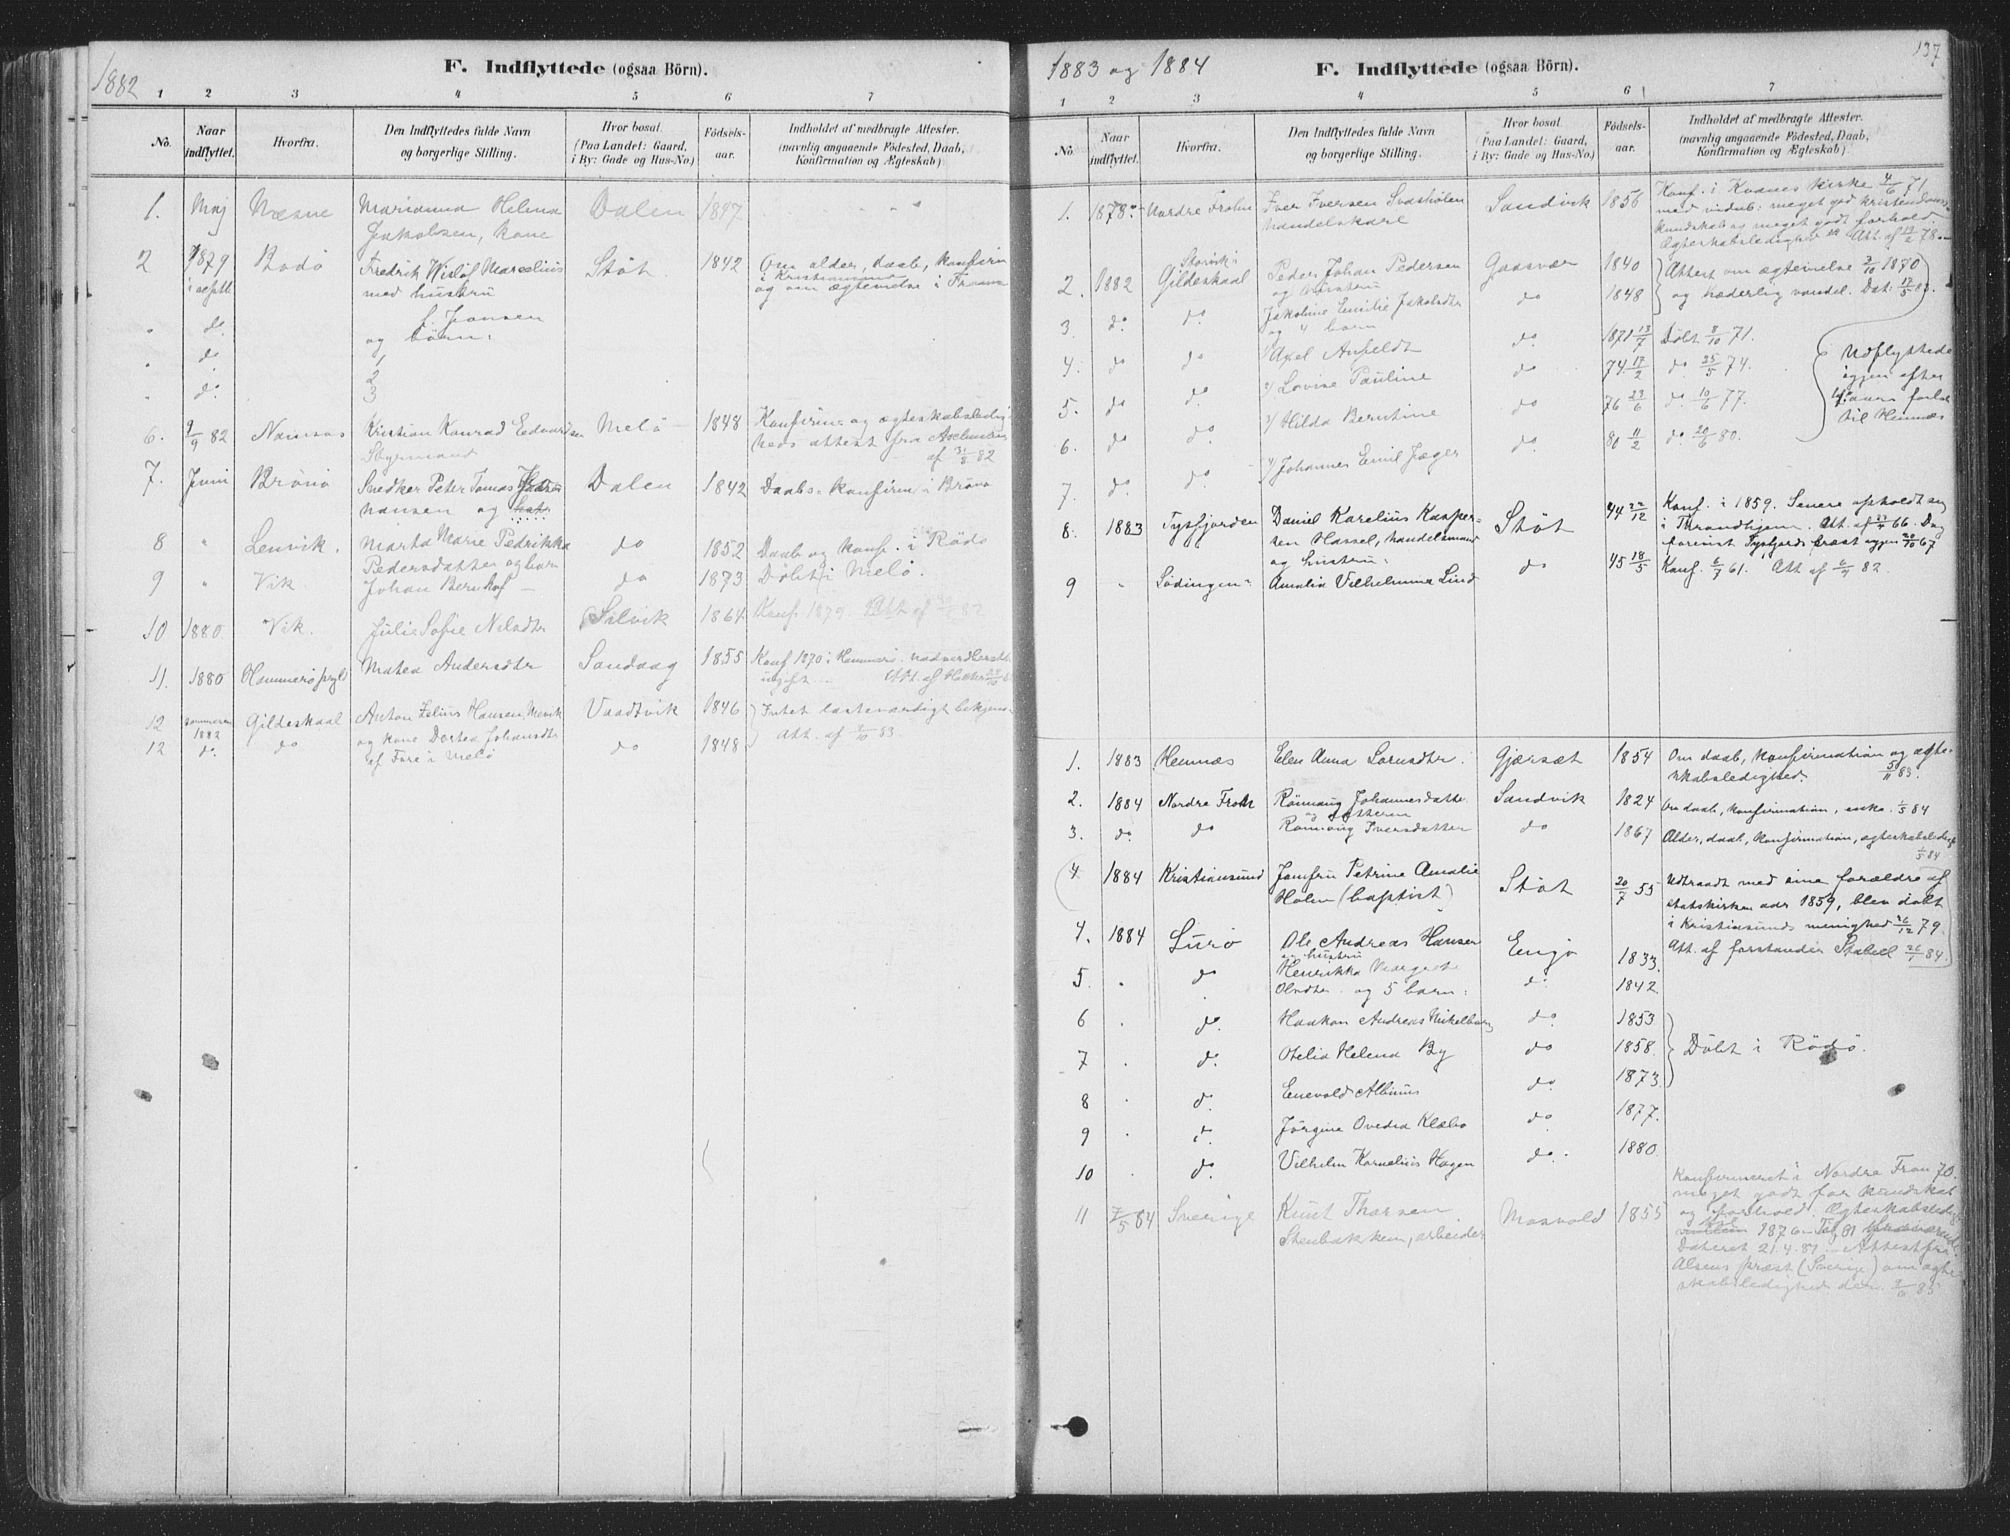 1882
F. Indflyttede (ogsaa Börn).
1 2 3 4 5 6 7
No. Naar indflyttet. Hvorfra. Den Indflyttedes fulde Navn og borgerlige Stilling. Hvor bosat. (Paa Landet: Gaard, i By: Gade og Hus-No.) Födselsaar. Indholdet af medbragte Attester. (navnlig angaaende Födested, Daab, Konfirmation og Ægteskab).
1. Maj Næsne Marianna Helena Dalen 1847
Jakobsen, kone
2 1879 Bodö Fredrik Wislöf Marcelius Stöt. 1842 Om alder, daab, konfirm
med hustru i Kristiansund
og om ægtevielse i
Jansen
do. og börn:
do 1
2
do. 3
6. 9/9 82 Namsos Kristian Konrad Edvardsen Melö 1848 Konfirm- og ægteskabsledig-
Styrmand heds attest fra
af 31/8 82
7. Juni Brönö Snedker Peter Tomas Dalen 1842 Daabs- konfirm i Brönö
hansen og
8 " Lenvik. Marta Marie Pedrikka do 1852 Daab og konf. i Rödö
Pedersdatter og barn
9 " Vik. Johan Bernhof — do 1873 Döbt i Melö.
10 1880 Vik. Julie Sofie Nilsdtr Selvik 1864 Konf. 1879. Att. af 82
11. 1880 Hammerö Matea Andersdtr Sandaag 1855 Konf 1870 i Hammerö.
ugift Att. af
12 sommeren 1882 Gildeskaal Anton Hansen, Vaadtvik 1846 Intet lastværdigt bekjend
12 do. do og kone Dortea Johansdtr do 1848 Att. af 7/10 83.
af Fore i Melö
137
1883 og 1884
F. Indflyttede (ogsaa Börn).
1 2 3 4 5 6 7
No. Naar indflyttet. Hvorfra. Den Indflyttedes fulde Navn og borgerlige Stilling. Hvor bosat. (Paa Landet: Gaard, i By: Gade og Hus-No.) Födselsaar. Indholdet af medbragte Attester. (navnlig angaaende Födested, Daab, Konfirmation og Ægteskab).
1. 1878. Nordre Frohn Iver Iversen Svashölen Sandvik 1856 Konf. i Kvams kirke 4/6 71
handelskarl med vidnb: meget god kristendoms-
kundskab og meget godt forhold
Ægteskabsledighed Att. af 78.
2. 1882 Störvik i Gildeskaal Peder Johan Pedersen Gaasvær 1840 Attest om ægtevielse 3/10 1870
og hustru
3 do. do. Jakobine Emilie Jakobsdtr do 1848 og hæderlig vandel. Dat: 12/5
og 4 barn
4. do do 1/ Axel Anfeldt do. 1871 13/7 Döbt 8/10 71.
5. do do. 2/ Lovise Pauline do 74. 17/2 do 25/5 74.
6. do do. 3/ Hilda Berntine do 76 23/6 do 10/6 77.
7. do. do. 4/ Johannes Emil Jæger do. 80 11/2 do 20/6 80.
Udflyttede
igjen efter
til Hemnæs
8. 1883 Tysfjorden Daniel Karelius Kasper- Stöt 44 22/12 Konf. i 1859. Senere opholdt sig
sen Hassel, handelsmand i Throndhjem. Att. af 27/4 66. Dog
og hustru: Tysfjords præst igjen 20/10 67
9 " Lödingen Amalia Vilhelmine Lind do 45 18/5 Konf. 6/7 61. Att. af 6/7 82.
1. 1883 Hemnæs Elen Anna Larusdtr. Gjærsæt 1854 Om daab, konfirmation og ægte-
skabsledighed. 5/11 83.
2. 1884 Nordre Frohn Rönnaug Johannesdatter Sandvik 1824 Om daab, konfirmation, enke. 1/5 84
og datteren
3. do. do Rönnaug Iversdatter do 1867 Alder, daab, konfirmation, ægteskabsledigh
1/5 84
(4 1884 Kristiansund Jomfru Petrine Amalie Stöt 20/7 55 Udtraadt med sine forældre af
Holm (baptist) statskirken aar 1859, blev döbt
i Kristiansunds menighed 26/12 79.
Att. af forstander Stabell 26/1 84.
4. 1884 Lurö Ole Andreas Hansen Engö 1833.
og hustru
5. . do Henrikka Margrete do. 1842.
Olsdtr. og 5 barn:
6 . do. Haakon Andreas Mikelborg do. 1853
7 . do. Otelia Helena By do 1858. Döbt i Rödö.
8 . do. Enevold Albinus do. 1873.
9 . do. Jörgine Ovedia Klæbo do. 1877.
10 . do. Vilhelm Kornelius Hagen do. 1880.
11 7/5 84 Sverige Knut Thorsen Mosvold 1855 Konfirmeret i Nordre Fron 70.
Stenbakken, arbeider meget godt for kundskab
og forhold. Ægteskabsledig
1876 –
Dateret 21.4.81 – Attest fra
Alsens præst (Sverige) om ægte-
skabsledighed den 85